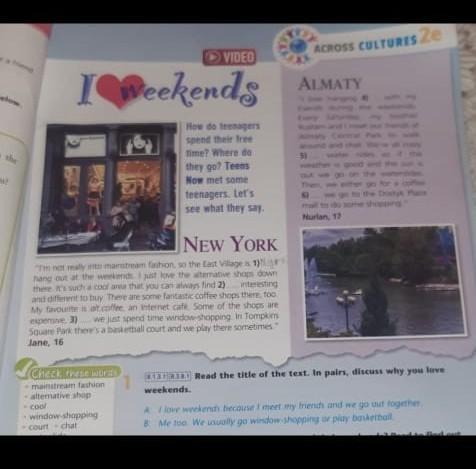 VIDEO
ACROSS CULTURES 2e
I weekends
How do teenagers
spend their free
time? Where do
they go? Teens
Now met some
teenagers. Let's
see what they say.
NEW YORK
"I'm not really into mainstream fashion, so the East Village is 1)
hang out at the weekends. I just love the alternative shops down
there. It's such a cool area that you can always find 2) .... interesting
and different to buy. There are some fantastic coffee shops there, too.
My favourite is alt.coffee, an Internet café. Some of the shops are
expensive, 3) .... we just spend time window-shopping. In Tompkins
Square Park there's a basketball court and we play there sometimes."
Jane, 16
ALMATY
"I love hanging 4) .... with my
friends during the weekends.
Every Saturday, my brother
Rustam and I meet our friends at
Almaty Central Park to walk
around and chat. We're all crazy
5) .... water rides, so if the
weather is good and the sun is
out we go on the waterslides.
Then, we either go for a coffee
6) .... we go to the Dostyk Plaza
mall to do some shopping."
Nurlan, 17
Check these words
- mainstream fashion
- alternative shop
- cool
- window-shopping
- court - chat
1
Read the title of the text. In pairs, discuss why you love
weekends.
A: I love weekends because I meet my friends and we go out together.
B: Me too. We usually go window-shopping or play basketball.